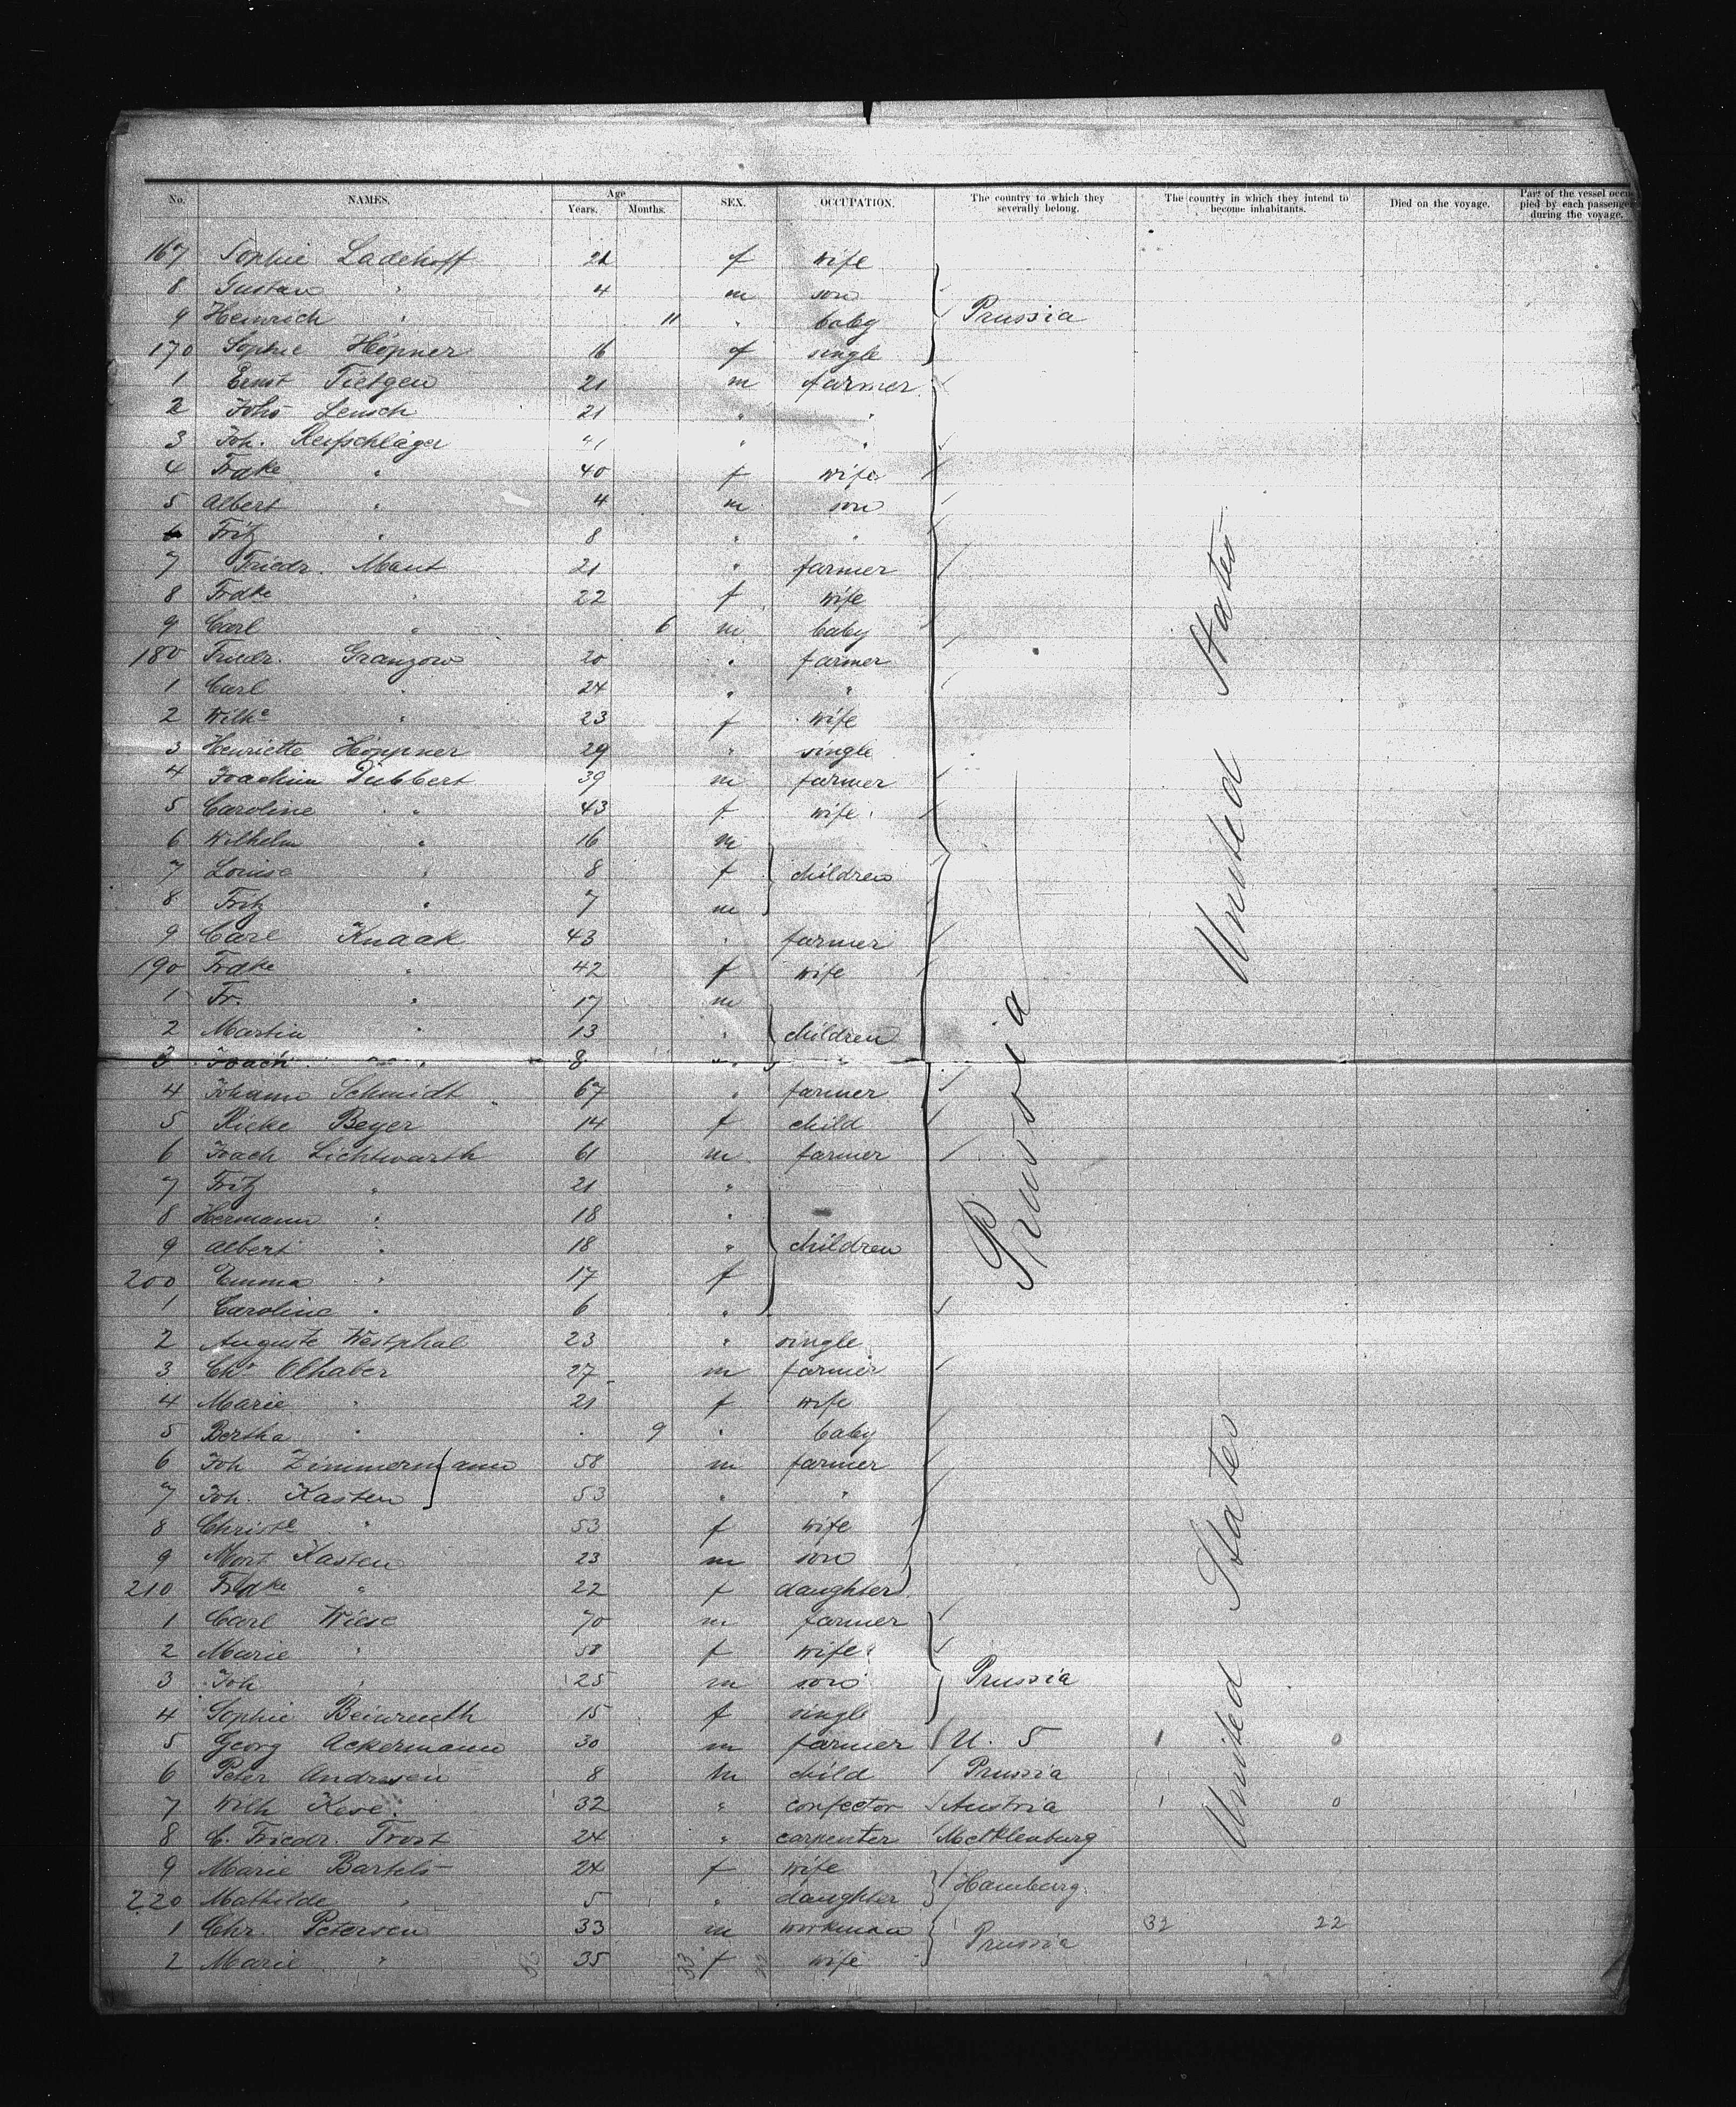 No. NAMES. Age Years. Months. SEX. OCCUPATION. The country to which they severally belong. The country in which they intend to become inhabitants. Died on the voyage. Part of the vessel occupied by each passenger during the voyage.
167 Sophie Ladehoff 21 f wife
8 Gustav " 4 m son
9 Heinrich " 11 " baby Prussia
170 Sophie Höpner 16 f single
1 Ernst Tietgen 21 m farmer
2 Johs Lensch 21 " "
3 Joh. Reifschläger 41 " "
4 Frdke " 40 f wife
5 Albert " 4 m son
6 Fritz " 8 " "
7 Friedr. Maut 21 " farmer
8 Frdke " 22 f wife
9 Carl " 6 m baby
180 Friedr. Granzow 20 " farmer
1 Carl " 24 " "
2 Wilhe " 23 f wife
3 Henriette Höppner 29 " single
4 Joachim Tubbert 39 m farmer
5 Caroline " 43 f wife
6 Wilhelm " 16 m
7 Louise " 8 f children
8 Fritz " 7 m
9 Carl Knaak 43 " farmer
190 Frdke " 42 f wife
1 Fr. " 17 m
2 Martin " 13 " children
3 Joach. " 8 "
4 Johann Schmidt 67 " farmer
5 Rieke Beyer 14 f child
6 Joach Lichtwarth 61 m farmer
7 Fritz " 21 "
8 Hermann " 18 "
9 Albert " 18 " children
200 Emma " 17 f
1 Caroline " 6 "
2 Auguste Westphal 23 " single
3 Chr Olhaber 27 m farmer
4 Marie " 21 f wife
5 Bertha " 9 " baby
6 Joh Zimmermann 58 m farmer
7 Joh. Kasten 53 " "
8 Christe " 53 f wife
9 Mort Kasten 23 m son
210 Frdke " 22 f daughter
1 Carl Wiese 70 m farmer
2 Marie " 58 f wife
3 Joh " 25 m son Prussia
4 Sophie Beinreuth 15 f single
5 Georg Ackermann 30 m farmer U. S 1 0
6 Peter Andresen 8 m child Prussia
7 Wilh Kese. 32 " confector Austria 1 0
8 C. Friedr. Trost 24 " carpenter Mecklenburg
9 Marie Bartels 24 f wife Hamburg
220 Mathilde " 5 " daughter
1 Chr. Petersen 33 m workman Prussia 32 22
2 Marie " 35 f wife
Prussia
United States
United States